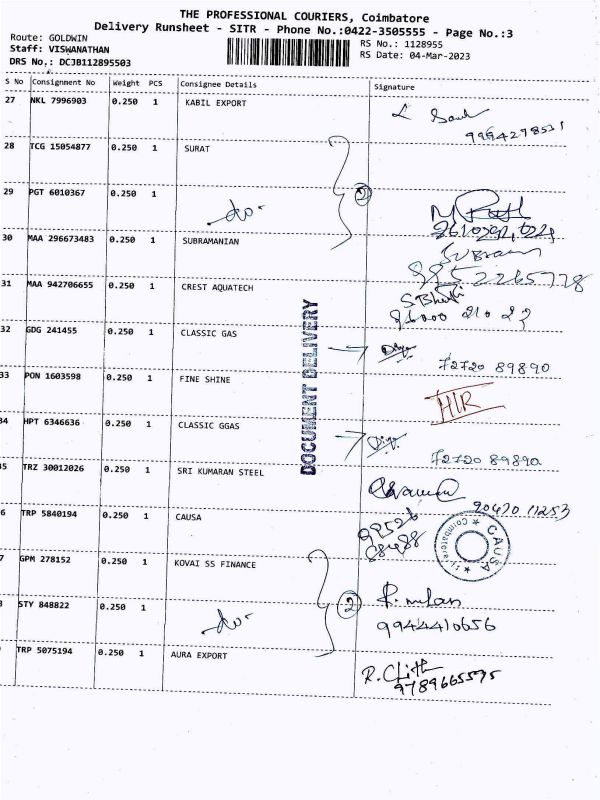 THE PROFESSIONAL COURIERS, Coimbatore
Delivery Runsheet - SITR - Phone No.:0422-3505555 - Page No.:3
Route: GOLDWIN
Staff: VISWANATHAN
DRS No,: DCJB112895503
RS No.: 1128955
RS Date: 04-Mar-2023
S No Consignment No Weight PCS Consignee Details Signature
27 NKL 7996903 0.250 1 KABIL EXPORT
28 TCG 15054877 0.250 1 SURAT
29 PGT 6010367 0.250 1
2
30 MAA 296673483 0.250 1 SUBRAMANIAN
31 MAA 942706655 0.250 1 CREST AQUATECH
32 GDG 241455 0.250 1 CLASSIC GAS
72720 89890
33 PON 1603598 0.250 1 FINE SHINE
34 HPT 6346636 0.250 1 CLASSIC GGAS
72720 89890
5 TRZ 30012026 0.250 1 SRI KUMARAN STEEL
90470 11253
6 TRP 5840194 0.250 1 CAUSA
CAUSA
7 GPM 278152 0.250 1 KOVAI SS FINANCE
STY 848822 0.250 1
2
9944410656
TRP 5075194 0.250 1 AURA EXPORT
9789665595
DOCUMENT DELIVERY